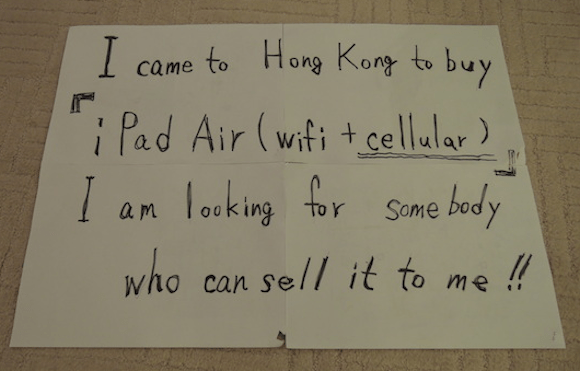 I came to Hong Kong to buy
「iPad Air (wifi + cellular)」
I am looking for somebody
who can sell it to me!!